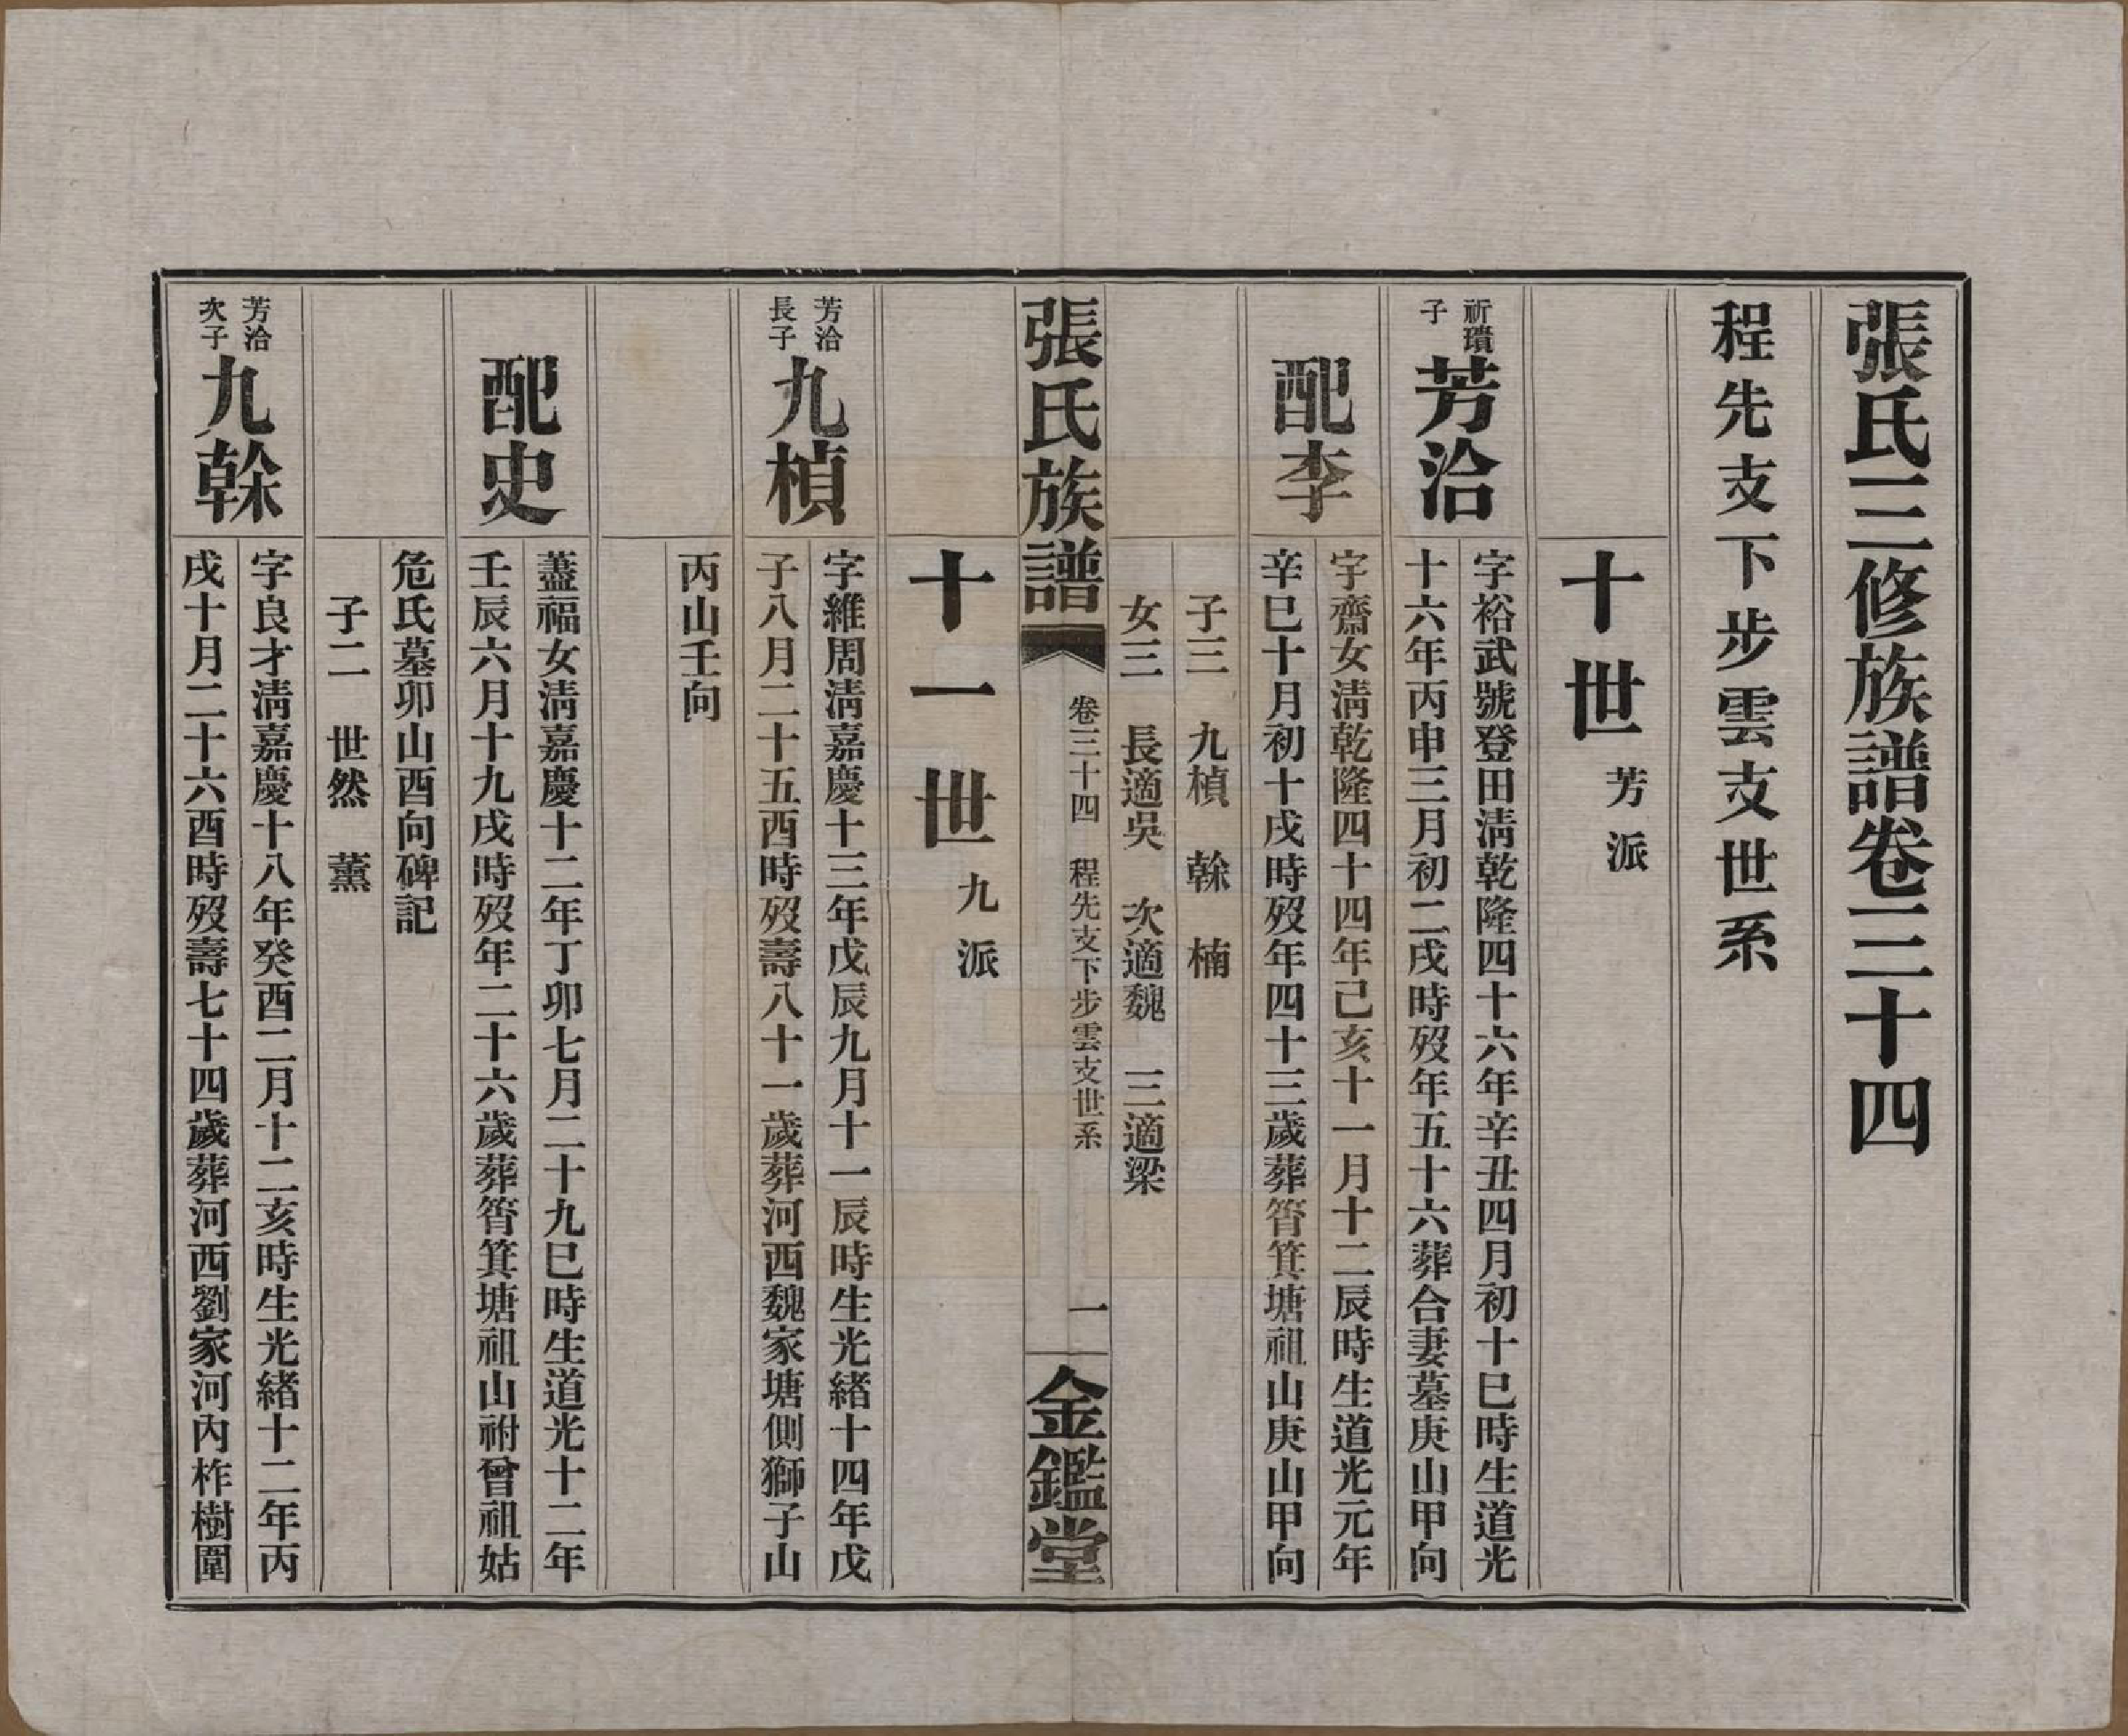 張氏三修族譜卷三十四
程先支下步雲支世系
十世 芳派
祈璜子
芳洽
字裕武號登田淸乾隆四十六年辛丑四月初十巳時生道光
十六年丙申三月初二戌時歿年五十六葬合妻墓庚山甲向
配李
字齋女淸乾隆四十四年己亥十一月十二辰時生道光元年
辛巳十月初十戌時歿年四十三歲葬筲箕塘祖山庚山甲向
子三 九楨 榦 楠
女三 長適吳 次適魏 三適梁
張氏族譜 卷三十四 程先支下步雲支世系 一 金鑑堂
十一世 九派
芳洽長子
九楨
字維周淸嘉慶十三年戊辰九月十一辰時生光緒十四年戊
子八月二十五酉時歿壽八十一歲葬河西魏家塘側獅子山
丙山壬向
配史
藎福女淸嘉慶十二年丁卯七月二十九巳時生道光十二年
壬辰六月十九戌時歿年二十六歲葬筲箕塘祖山祔曾祖姑
危氏墓卯山酉向碑記
子二 世然 薰
芳洽次子
九榦
字良才淸嘉慶十八年癸酉二月十二亥時生光緒十二年丙
戌十月二十六酉時歿壽七十四歲葬河西劉家河內柞樹圍